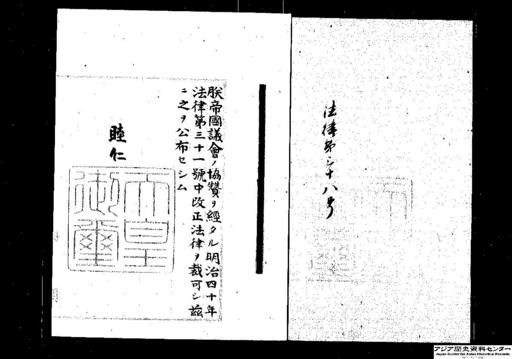 法律第三十八号
朕帝國議會ノ協賛ヲ經タル明治四十年
法律第三十一號中改正法律ヲ裁可シ茲
ニ之ヲ公布セシム
睦仁
天皇
御璽
アジア歴史資料センター
Japan Center for Asian Historical Records